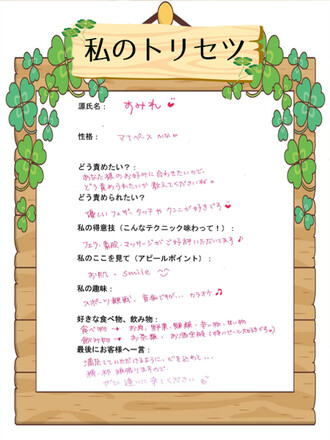 私のトリセツ
源氏名： すみれ
性格： マイペース
どう責めたい？：
あなた様のお好みに合わせたいので、
どう責められたいか教えてくださいね。
どう責められたい？：
優しいフェザータッチやクンニが好きです
私の得意技（こんなテクニック味わって！）：
フェラ、素股、マッサージがご好評いただいてます♪
私のここを見て（アピールポイント）：
お尻、smile
私の趣味：
スポーツ観戦、 カラオケ♪
好きな食べ物、飲み物：
食べ物 → お肉、野菜、麺類、辛い物、甘い物
飲み物 → お茶類、お酒全般
最後にお客様へ一言：
満足していただけるように、心を込めて...
精一杯頑張りますので、
ぜひ逢いに来てください